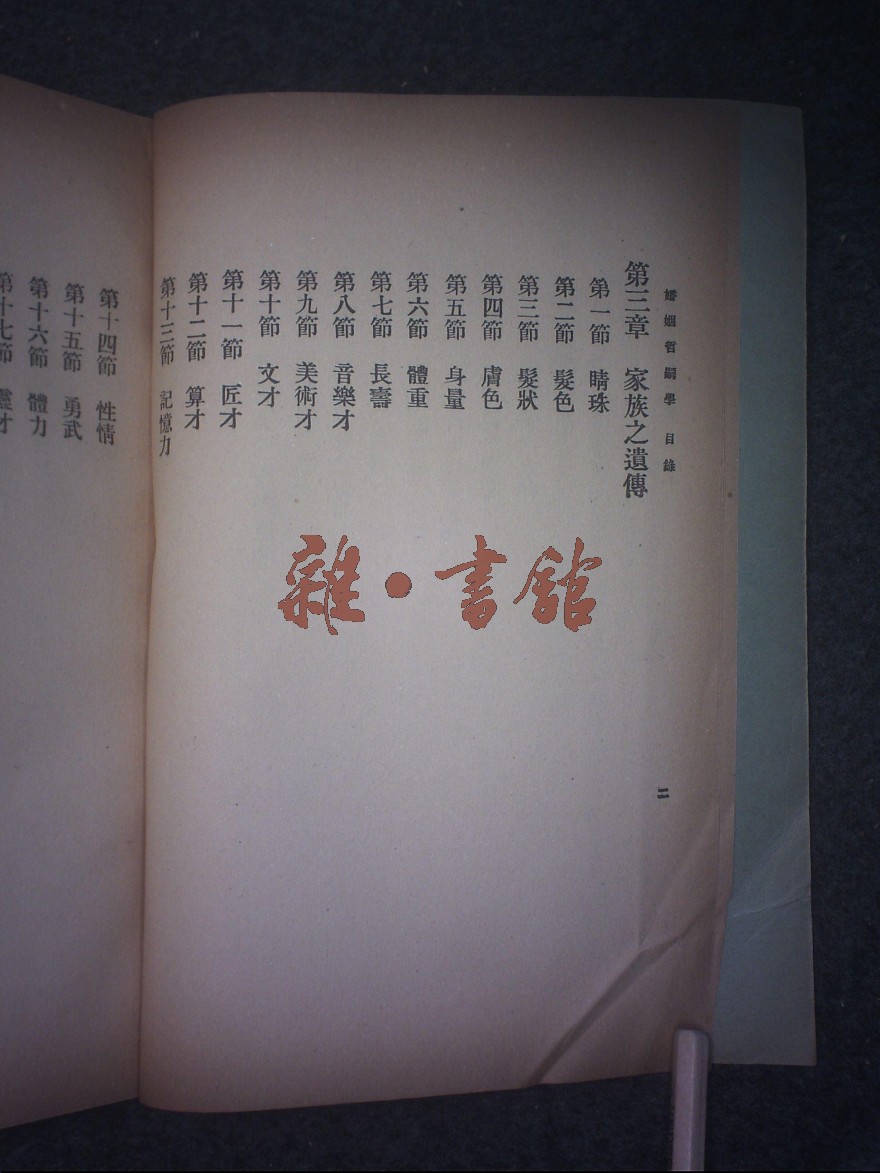 婚姻哲嗣學 目錄
第三章 家族之遺傳
第一節 睛珠
第二節 髮色
第三節 髮狀
第四節 膚色
第五節 身量
第六節 體重
第七節 長壽
第八節 音樂才
第九節 美術才
第十節 文才
第十一節 匠才
第十二節 算才
第十三節 記憶力
二
第十四節 性情
第十五節 勇武
第十六節 體力
第十七節
雜·書館